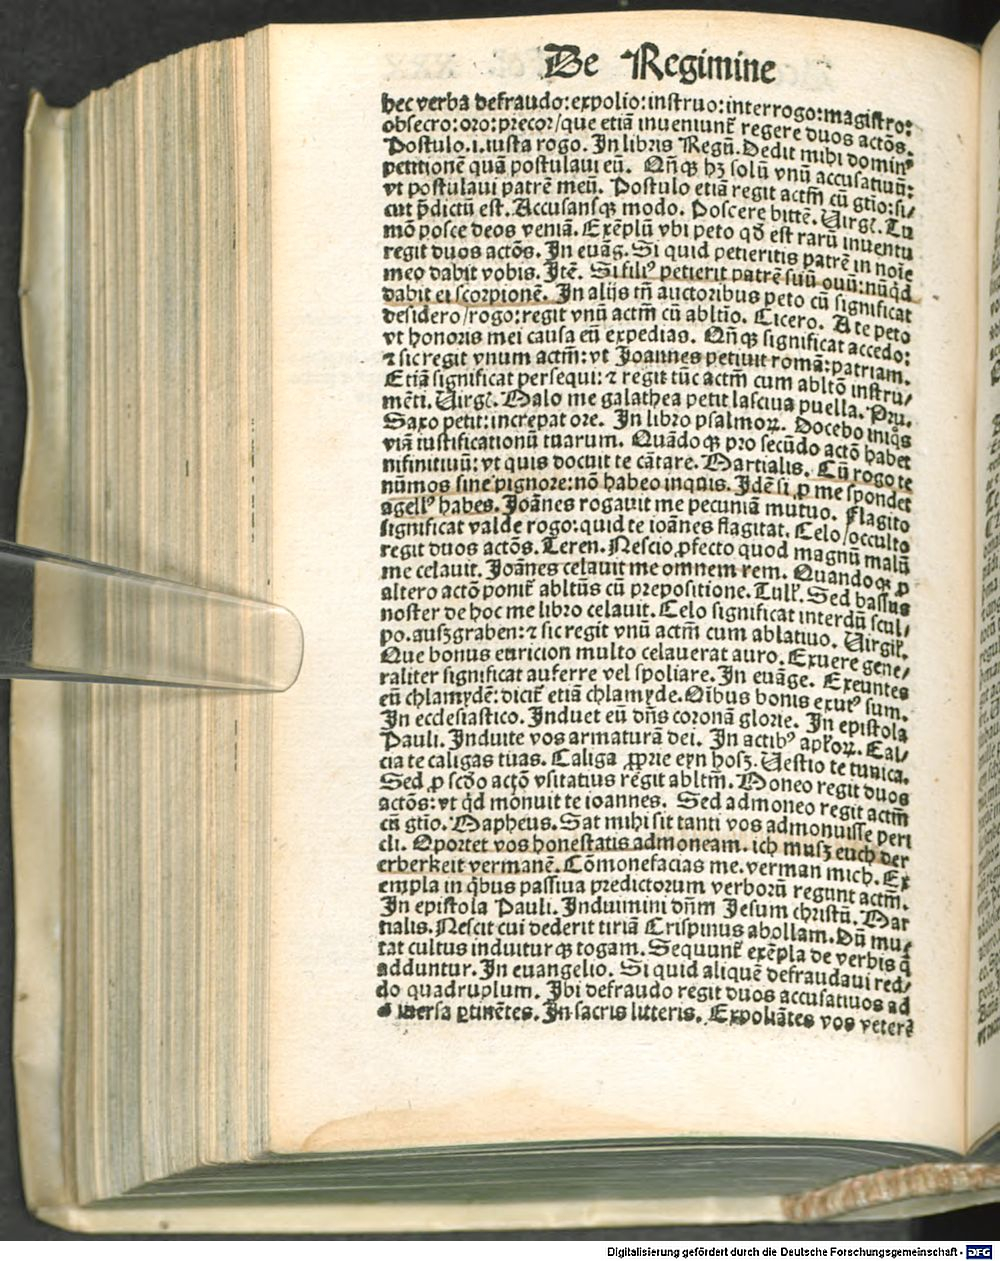 De Regimine
hec verba defraudo:expolio:instruo:interrogo:magistro:
obsecro:oro:precor/que etiã inueniunt᷑ regere duos actõs.
Postulo.i.iusta rogo. In libris Regũ. Dedit mihi dominꝰ
petitionẽ quã postulaui eũ. Qñqꝫ hꝫ solũ vnũ accusatiuũ:
vt postulaui patrẽ meũ. Postulo etiã regit actm̃ cũ gtĩo:si/
cut p̃dictũ est. Accusansqꝫ modo. Poscere bittẽ. Uirgꝭ. Tu
mõ posce deos veniã. Exẽplũ vbi peto qd̃ est rarũ inuentu
regit duos actõs. In euãg. Si quid petieritis patrẽ in noĩe
meo dabit vobis. Itẽ. Si filiꝰ petierit patrẽ suũ ouũ:nũqd̃
dabit ei scorpionẽ. In alijs tñ auctoribus peto cũ significat
desidero/rogo:regit vnũ actm̃ cũ abltĩo. Cicero. A te peto
vt honoris mei causa eũ expedias. Qñqꝫ significat accedo:
⁊ sic regit vnum actm̃:vt Joannes petiuit romã:patriam.
Etiã significat persequi:⁊ regit tũc actm̃ cum abltõ instru/
mẽti. Uirgꝭ. Malo me galathea petit lasciua puella. Pru.
Saxo petit:increpat ore. In libro psalmoꝝ. Docebo iniq̊s
viã iustificationũ tuarum. Quãdoqꝫ pro secũdo actõ habet
nifinitiuũ:vt quis docuit te cãtare. Martialis. Cũ rogo te
nũmos sine pignore:nõ habeo inquis. Idẽ si ꝓ me spondet
agellꝰ habes. Joãnes rogauit me pecuniã mutuo. Flagito
significat valde rogo:quid te ioãnes flagitat. Celo/occulto
regit duos actõs. Teren. Nescio ꝓfecto quod magnũ malũ
me celauit. Joãnes celauit me omnem rem. Quandoqꝫ ꝓ
altero actõ ponit᷑ abltũs cũ prepositione. Tulꝉ. Sed bassus
noster de hoc me libro celauit. Celo significat interdũ scul/
po.auszgraben:⁊ sic regit vnũ actm̃ cum ablatiuo. Uirgiꝉ.
Que bonus euricion multo celauerat auro. Exuere gene/
raliter significat auferre vel spoliare. In euãge. Exeuntes
eũ chlamydẽ:dicit᷑ etiã chlamyde. Oĩbus bonis exutꝰ sum.
In ecclesiastico. Induet eũ dñs coronã glorie. In epistola
Pauli. Induite vos armaturã dei. In actibꝰ apꝉoꝝ. Cal/
cia te caligas tuas. Caliga ꝓprie eyn hosz. Uestio te tunica.
Sed ꝓ scd̃o actõ vsitatius regit abltm̃. Moneo regit duos
actõs:vt qd̃ monuit te ioannes. Sed admoneo regit actm̃
cũ gtĩo. Mapheus. Sat mihi sit tanti vos admonuisse peri
cli. Oportet vos honestatis admoneam. ich musz euch der
erberkeit vermanẽ. Cõmonefacias me. verman mich. Ex
empla in q̃bus passiua predictorum verborũ regunt actm̃.
In epistola Pauli. Induimini dñm Jesum christũ. Mar
tialis. Nescit cui dederit tiriã Crispinus abollam. Dũ mu/
tat cultus induiturqꝫ togam. Sequunt᷑ exẽpla de verbis q̃
adduntur. In euangelio. Si quid aliquẽ defraudaui red/
do quadruplum. Ibi defraudo regit duos accusatiuos ad
diuersa ꝑtinẽtes. In sacris litteris. Expoliãtes vos veterẽ
Digitalisierung gefördert durch die Deutsche Forschungsgemeinschaft - DFG